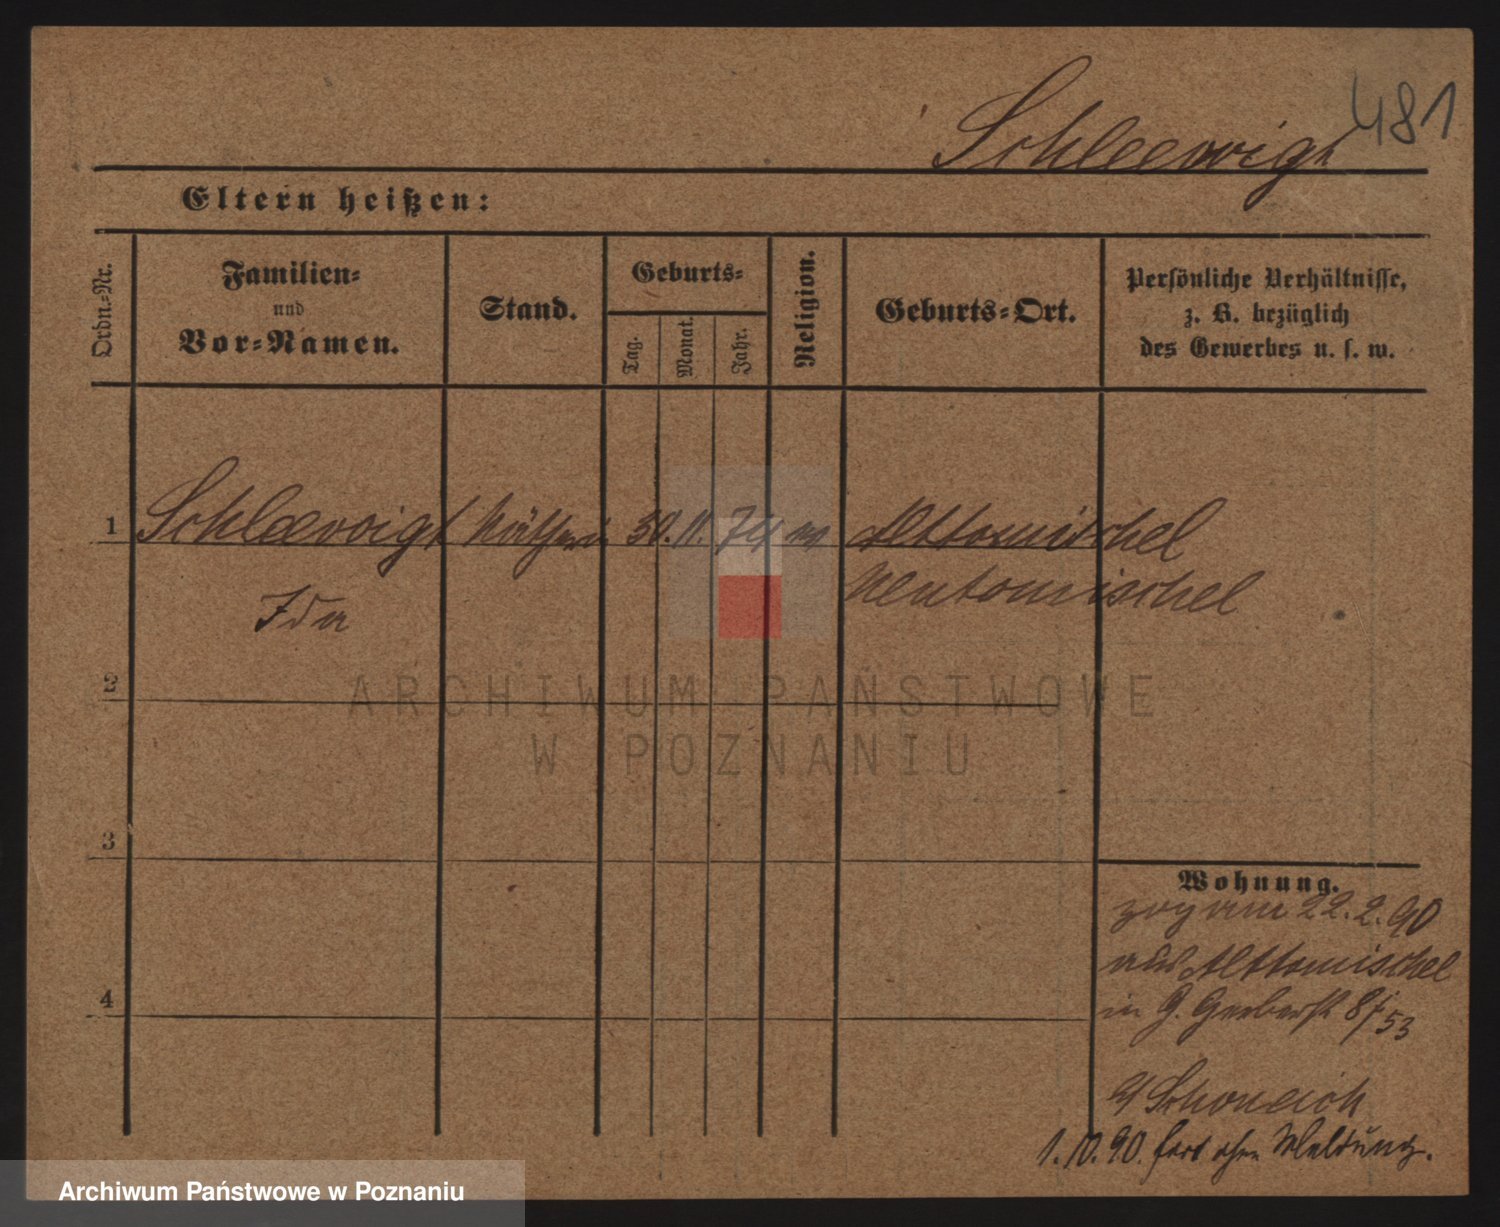 481
Schleevoigt
Eltern heißen:
Ordn.-Nr.
Familien-
und
Vor-Namen.
Stand.
Geburts-
Tag.
Monat.
Jahr.
Religion.
Geburts-Ort.
Persönliche Verhältnisse,
z. B. bezüglich
des Gewerbes u. s. w.
1 Schleevoigt Näherin 30. 11. 74 ev Alttomischel
Ida Neutomischel
2
ARCHIWUM PAŃSTWOWE
W POZNANIU
3
Wohnung.
zog am 22.2.90
aus Alttomischel
in G. Gerberst 8/53
b/ Schoneich
4
1.10.90. fort ohne Meldung.
Archiwum Państwowe w Poznaniu